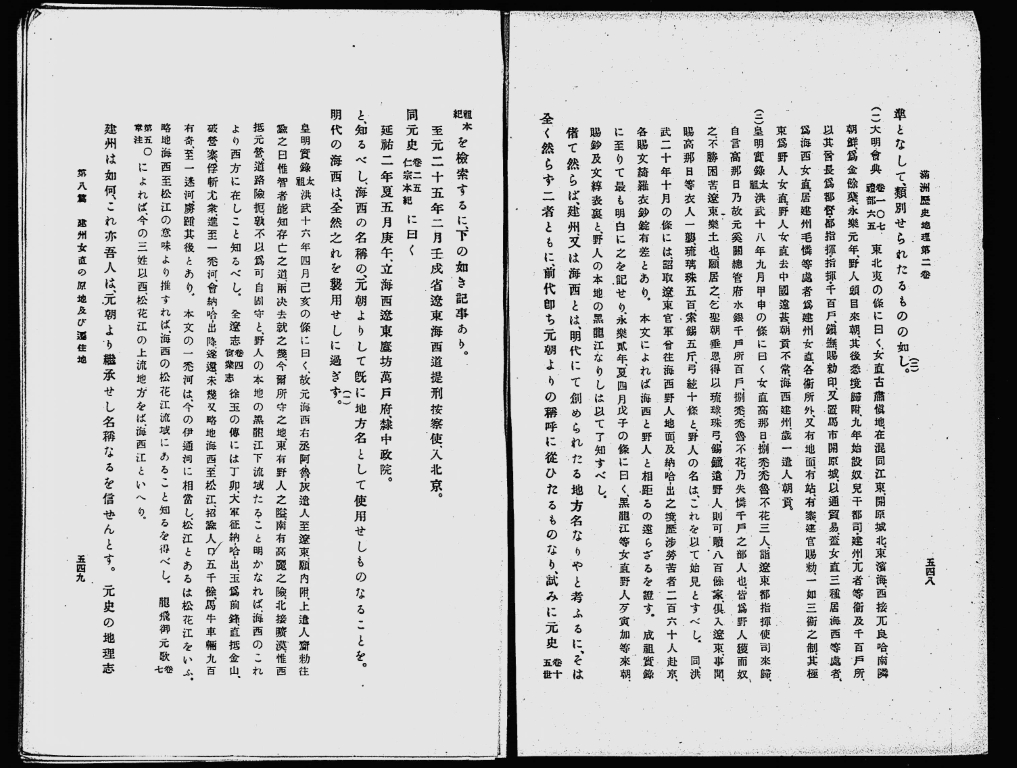 滿洲歷史地理第二卷
五四八
準となして、類別せられたるものの如し。(三)
(二)大明會典 卷一〇七 禮部六五 東北夷の條に曰く、女直古肅愼地、在混同江東、開原城北、東濱海、西接兀良哈、南隣
朝鮮、爲金餘孽、永樂元年、野人頭目來朝、其後悉境歸附、九年始設奴兒干都司、建州、兀者等衞及千百戶所、
以其酋長爲都督都指揮指揮千百戶鎭撫、賜勅印、又置馬市開原城、以通貿易、蓋女直三種、居海西等處者、
爲海西女直、居建州毛憐等處者、爲建州女直、各衞所外、又有地面、有站、有寨、建官賜勅、一如三衞之制、其極
東爲野人女直、野人女直去中國遠甚、朝貢不常、海西建州歲一遣人朝貢、
(三)皇明實錄 太祖 洪武十八年九月甲申の條に曰く女直高那日捌禿禿魯不花三人、詣遼東都指揮使司來歸、
自言高那日乃故元奚關總管府水銀千戶所百戶、捌禿、禿魯不花、乃失憐千戶之部人也、皆爲野人獲而奴
之、不勝困苦、遼東樂土也、願居之、乞聖朝垂恩、得以琉球珠弓錫鑞遺野人、則可贖八百餘家、俱入遼東、事聞、
賜高那日等衣人一襲、琉璃珠五百索、錫五斤、弓絃十條と、野人の名は、これを以て始見とすべし。 同、洪
武二十年十月の條には、詔取遼東官軍曾往海西野人地面、及納哈出之境歷涉勞苦者二百六十人赴京、
各賜文綺羅衣鈔錠有差とあり。 本文によれば海西と野人と相距るの遠らざるを證す。 成祖實錄
に至りて最も明白に之を記せり、永樂貳年夏四月戊子の條に曰く、黑龍江等女直野人歹寅加等來朝、
賜鈔及文綺表裏と、野人の本地の黑龍江なりしは以て了知すべし。
偖て然らば、建州又は海西とは、明代にて創められたる地方名なりやと考ふるに、そは
全く然らず二者ともに、前代卽ち元朝よりの稱呼に從ひたるものなり、試みに元史 卷十五世
祖本紀 を檢索するに、下の如き記事あり。
至元二十五年二月壬戌、省遼東海西道提刑按察使、入北京。
同元史 卷二五仁宗本紀 に曰く
延祐二年夏五月庚午、立海西遼東鷹坊萬戶府、隸中政院。
と、知るべし、海西の名稱の、元朝よりして旣に地方名として使用せしものなることを。
明代の海西は、全然之れを襲用せしに過ぎず。(一)
皇明實錄 太祖 洪武十六年四月己亥の條に曰く、故元海西右丞阿魯灰、遣人至遼東、願內附、上遣人齎勅往
諭之曰、惟智者能知存亡之道、而決去就之幾、今爾所守之地、東有野人之隘、南有高麗之險、北接曠漠、惟西
抵元營、道路險扼、孰不以爲可自固守と、野人の本地の黑龍江下流域たること明かなれば、海西のこれ
より西方に在しこと知るべし。 全遼志 卷四官業志 徐玉の傳には丁卯大軍征納哈出、玉爲前鋒、直抵金山、
破營寨、俘斬尤衆、進至一禿河、會納哈出降、遂還、未幾又略地海西、至松江、招諭人口五千餘、馬牛車輛九百
有奇、至一迷河、虜躡其後とあり。 本文の一禿河は、今の伊通河に相當し、松江とあるは松花江をいふ、
略地海西至松江の意味より推すれば、海西の松花江流域にあること知るを得べし。 龍飛御天歌 卷七
第五〇章注 によれば今の三姓以西松花江の上流地方をば、海西江といへり。
建州は如何、これ亦吾人は、元朝より繼承せし名稱なるを信ぜんとす。 元史の地理志
第八篇 建州女直の原地及び遷住地
五四九